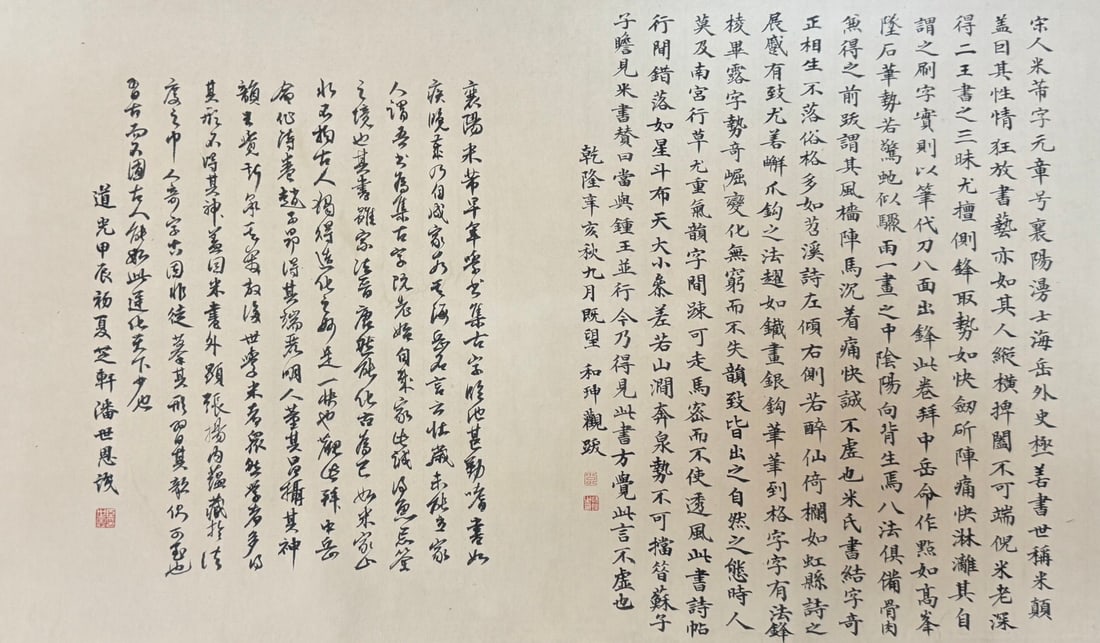 宋人米芾字元章号襄陽漫士海岳外史極善書世稱米顛
盖因其性情狂放書藝亦如其人縱橫捭闔不可端倪米老深
得二王書之三昧尤擅側鋒取勢如快劒斫陣痛快淋灕其自
謂之刷字實則以筆代刀八面出鋒此卷拜中岳命作點如高峯
墜石華勢若驚虵似驟雨一畫之中陰陽向背生焉八法俱備骨肉
兼得之前跋謂其風檣陣馬沉着痛快誠不虛也米氏書結字奇
正相生不落俗格多如苕溪詩左傾右側若醉仙倚欄如虹縣詩之
展蹙有致尤善蠏爪鈎之法趯如鐵畫銀鈎筆筆到格字字有法鋒
棱畢露字勢奇崛變化無窮而不失韻致皆出之自然之態時人
莫及南宮行草尤重氣韻字間踈可走馬密而不使透風此書詩帖
行間錯落如星斗布天大小叅差若山澗奔泉勢不可擋昝蘇子
子瞻見米書贊曰當與鍾王並行今乃得見此書方覺此言不虛也
乾隆辛亥秋九月既望和珅觀跋
襄陽米芾早年學書集古字臨池甚勤嗜書如
疾晚年乃自成家故其海岳名言云壮歲未能立家
人謂吾書為集古字既老始自成家此誠得魚忘筌
之境也其書雖家法晉唐然能化古為己如米家山
水不拘古人獨得造化之妙是一軼也觀此拜中岳
命作詩卷趙子昂得其端若明人董其昌攝其神
韻
其形不得其神盖因米書外顯張揚内蘊藏於法
度之中人奇字古因非徒摹其形習其
古人能如此造化天下少也
道光甲辰初夏芝軒潘世恩識